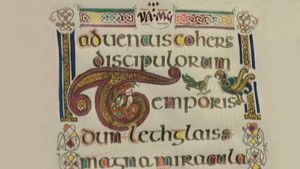 cohers
discipulorum
Temporis
dun lechglaiss
magna miracula